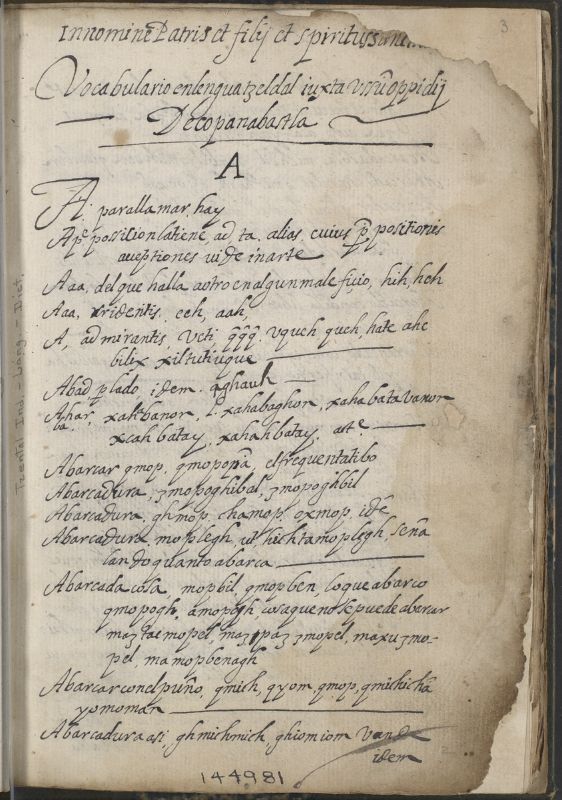 3
In nomine Patris et filij et spiritus
Vocabulario en lengua tzeldal iuxta usũ oppidij
De copanabastla
A
A. para llamar, hay
Ap.e possicion latiene, ad, ta. alias. cuius p̱positionis
aueptiones uide in arte
Aaa, del que halla aotro en algun maleficio, hih, heh
Aaa, rridentis. eeh, aah,
A, admirantis, Veti, q̃q̃q̃. uqueh queh, hate ahe
bilix xiltutiuque
Abad plado, idem. aghauh
xahbanor, l. xahabaghon, xaha bata vanor
xcah batay, xahah batay, ate.
Abarcar qmop, qmopopã, el frequentatibo
Abarcadura, zmopoghibal, zmopoghbil
Abarcadura, ghmop, chamop. oxmop, idẽ
Abarcadura moplegh, ul hich tamoplegh, seña
lando quanto abarca
Abarcada cosa, mopbil, qmopben, lo que abarco
qmopogh, amopogh cosa que no se puede abarcar
maz tae mopel, maz ipaz zmopel, maxu zmo-
pel, ma mopbenagh
Abarcar con el puño, qmich, qyom, qmop, qmichichã
yomoman
Abarcadura asi, ghmichmich, ghiomiom
idem
144981
Tzental Ind. - Lang. - Dict.